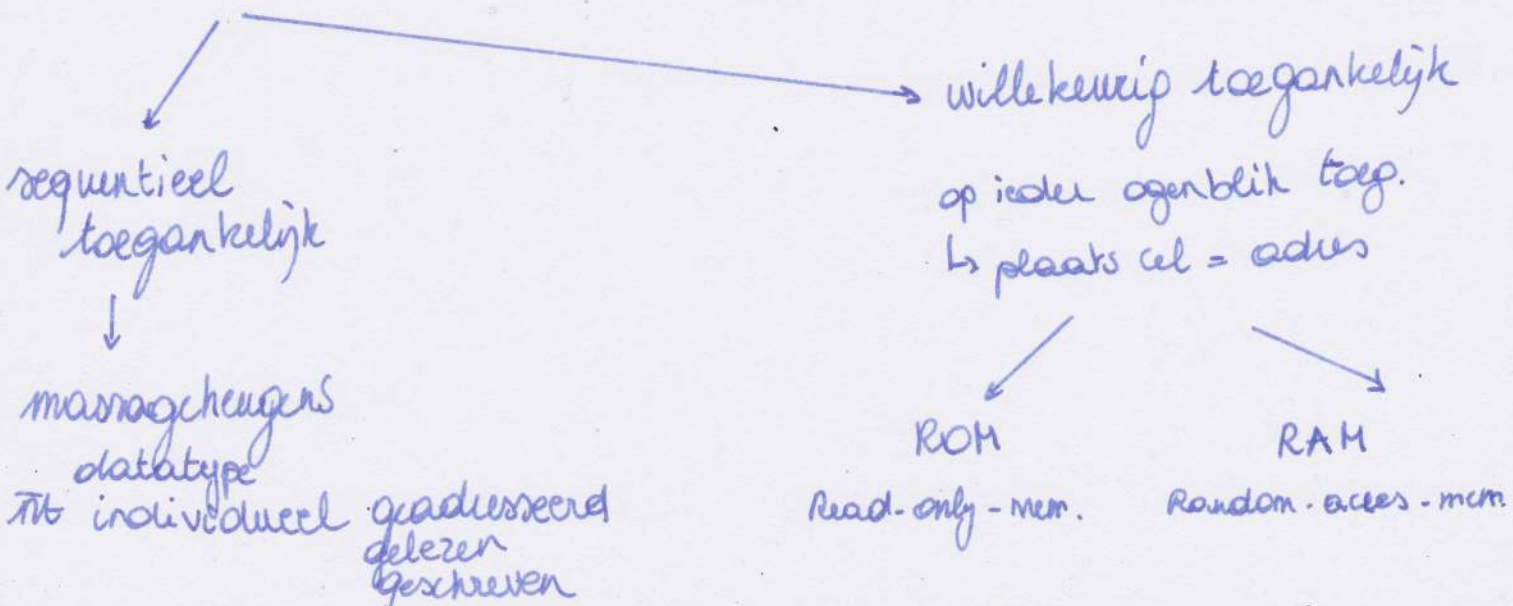 sequentieel
toegankelijk
massageheugens
datatype
individueel geadresseerd
gelezen
geschreven
willekeurig toegankelijk
op ieder ogenblik toeg.
↳ plaats cel = adres
ROM
Read-only-mem.
RAM
Random-acces-mem.